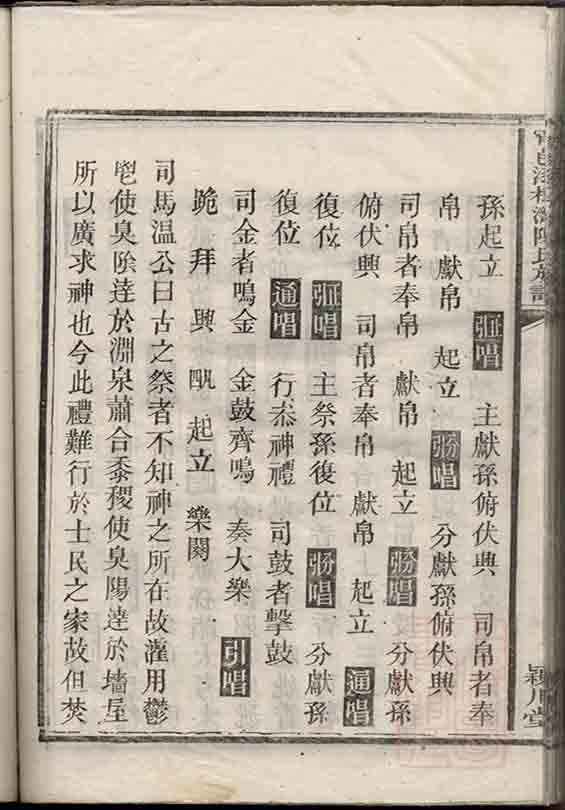 孫起立　引唱　主獻孫俯伏興　司帛者奉
帛　獻帛　起立　唱　分獻孫俯伏興
司帛者奉帛　獻帛　起立　唱　分獻孫
俯伏興　司帛者奉帛　獻帛　起立　通唱
復位　唱　主祭孫復位　唱　分獻孫
復位　通唱　行叅神禮　司鼓者擊鼓
司金者鳴金　金鼓齊鳴　奏大樂　引唱
跪　拜　興　四　起立　樂闋
司馬温公曰古之祭者不知神之所在故灌用鬱
鬯使臭隂逹於淵泉蕭合黍稷使臭陽逹於墻屋
所以廣求神也今此禮難行於士民之家故但焚
陳氏族譜
潁川堂